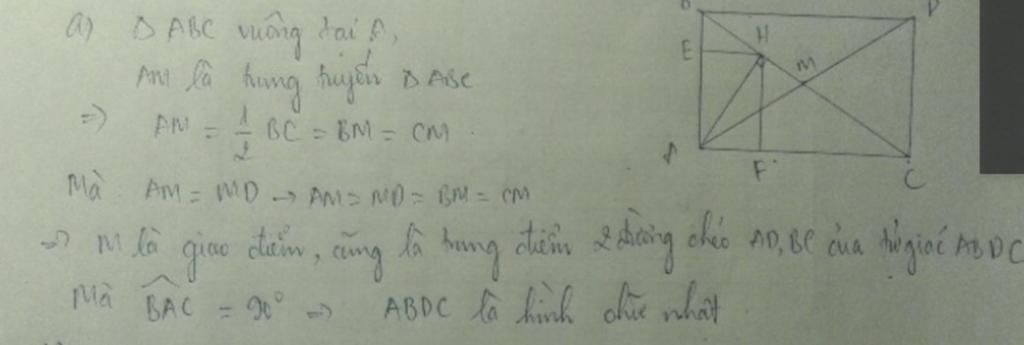 a) Δ ABC vuông tại A,
AM là trung tuyến Δ ABC
=> AM = 1/2 BC = BM = CM.
Mà AM = MD → AM = MD = BM = CM
=> M là giao điểm, cũng là trung điểm 2 đường chéo AD, BC của tứ giác ABDC
Mà BAC = 90° => ABDC là hình chữ nhật
B D
E H
M
A F C